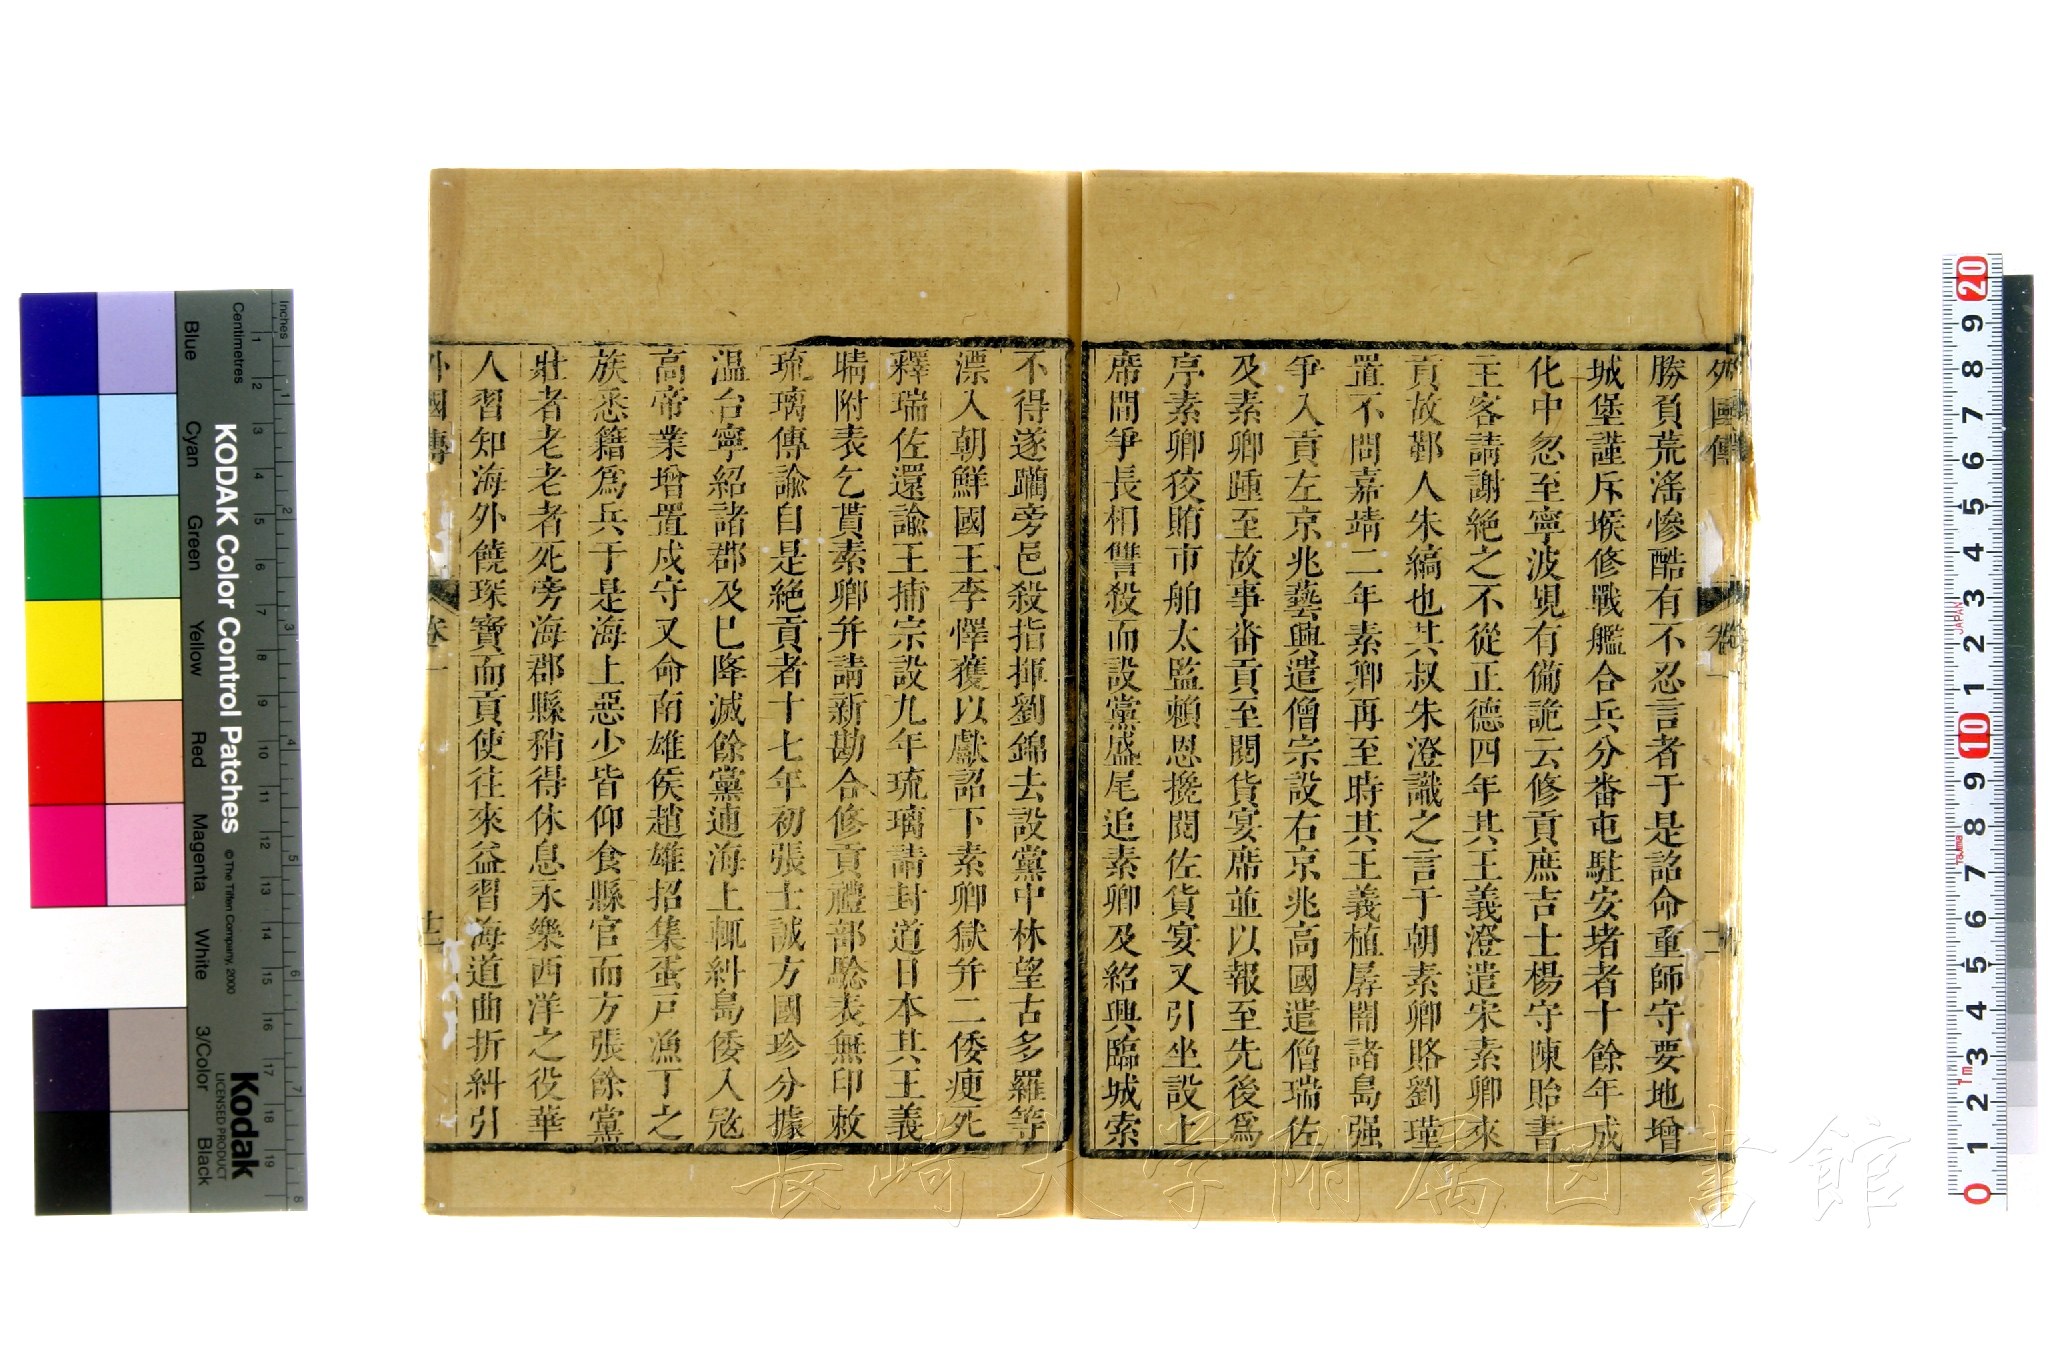 外國傳
卷一
勝負荒滛慘酷有不忍言者于是詔命重師守要地增
城堡謹斥堠修戰艦合兵分番屯駐安堵者十餘年成
化中忽至寧波覘有備詭云修貢庶吉士楊守陳貽書
主客請謝絶之不從正德四年其王義澄遣宋素卿來
貢故鄞人朱縞也其叔朱澄識之言于朝素卿賂劉瑾
置不問嘉靖二年素卿再至時其王義植孱闇諸島强
爭入貢左京兆藝興遣僧宗設右京兆高國遣僧瑞佐
及素卿踵至故事畨貢至閱貨宴席並以報至先後爲
序素卿狡賄市舶太監賴恩攙閱佐貨宴又引坐設上
席間爭長相讐殺而設黨盛尾追素卿及紹興臨城索
不得遂躪旁邑殺指揮劉錦去設黨中林望古多羅等
漂入朝鮮國王李懌獲以獻詔下素卿獄并二倭瘐死
釋瑞佐還諭王捕宗設九年琉璃請封道日本其王義
晴附表乞貰素卿并請新勘合修貢禮部騐表無印敕
琉璃傳諭自是絶貢者十七年初張士誠方國珍分據
温台寧紹諸郡及巳降滅餘黨逋海上輒糾島倭入寇
高帝業增置戍守又命南雄侯趙雄招集蛋戸漁丁之
族悉籍爲兵于是海上惡少皆仰食縣官而方張餘黨
壯者老老者死旁海郡縣稍得休息永樂西洋之役華
人習知海外饒琛寳而貢使往來益習海道曲折糾引
外國傳
卷一
十二
KODAK Color Control Patches
© The Tiffen Company, 2000
Kodak
LICENSED PRODUCT
Inches
Centimetres
Blue
Cyan
Green
Yellow
Red
Magenta
White
3/Color
Black
長崎大学附属図書館